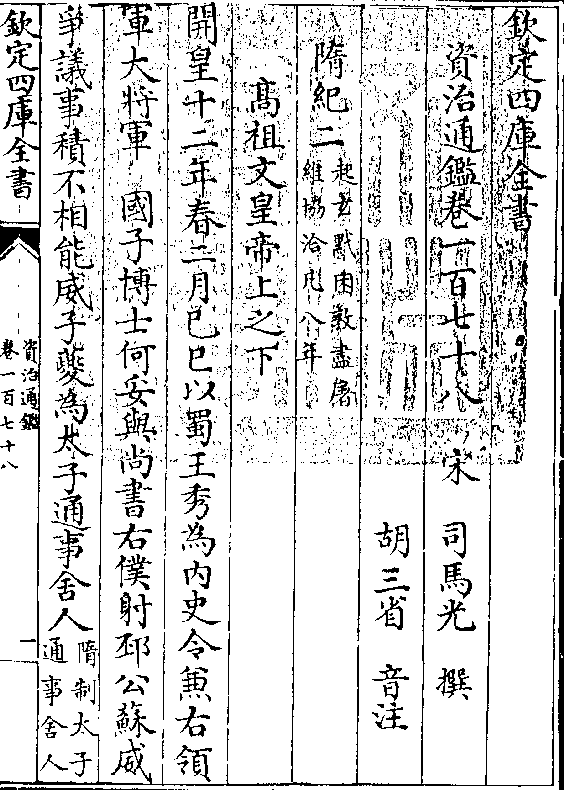 欽定四庫全書
資治通鑑卷一百七十八　宋　司馬光　撰
胡三省　音注
隋紀二起玄黓困敦盡屠
維協洽凡八年
髙祖文皇帝上之下
開皇十二年春二月己巳以蜀王秀為内史令兼右領
軍大將軍　國子博士何妥與尚書右僕射邳公蘇威
爭議事積不相能威子夔為太子通事舍人隋制太子
通事舍人
欽定四庫全書
資治通鑑
卷一百七十八
一